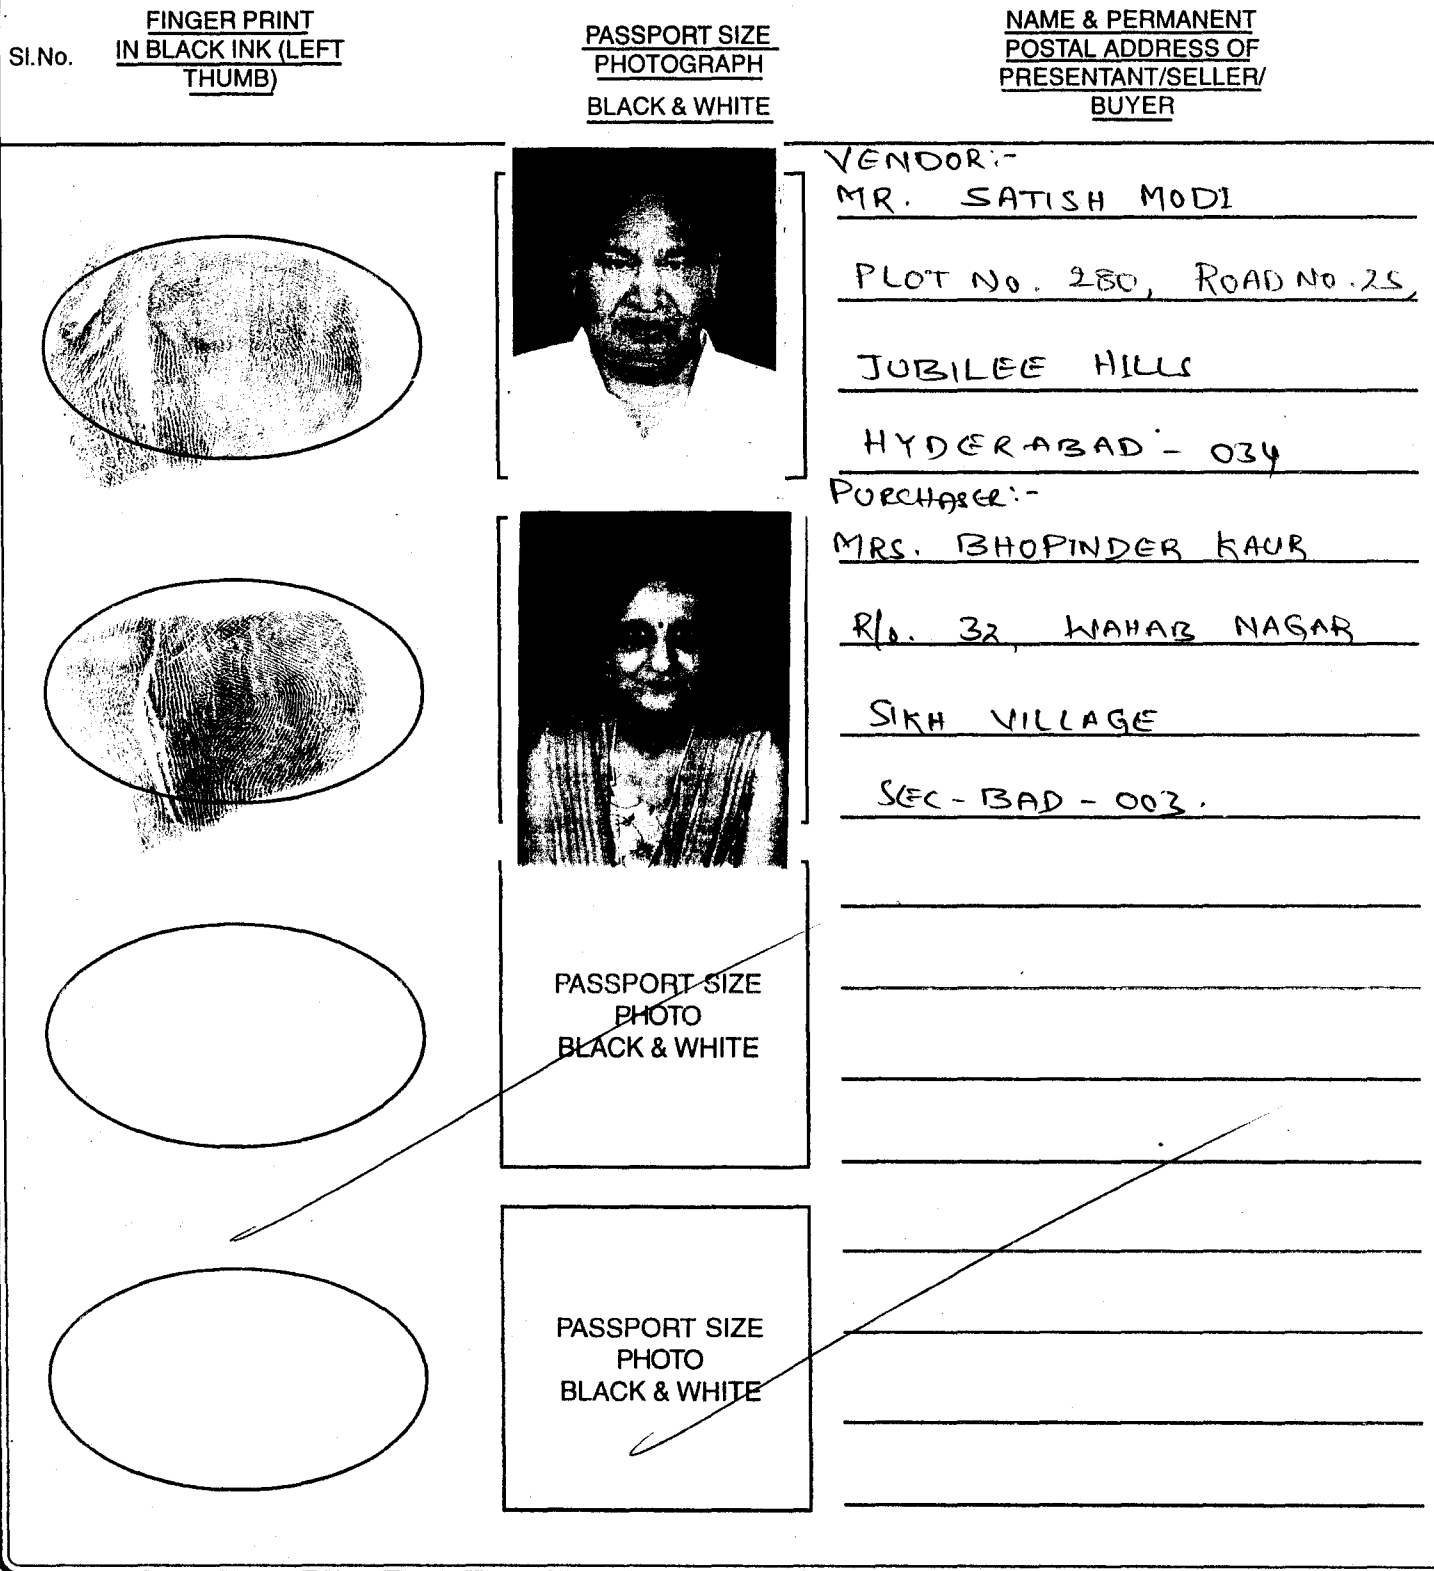 Sl.No.
FINGER PRINT
IN BLACK INK (LEFT
THUMB)
PASSPORT SIZE
PHOTOGRAPH
BLACK & WHITE
NAME & PERMANENT
POSTAL ADDRESS OF
PRESENTANT/SELLER/
BUYER
VENDOR:-
MR. SATISH MODI
PLOT No. 280, ROAD NO.25,
JUBILEE HILLS
HYDERABAD - 034
PURCHASER:-
MRS. BHOPINDER KAUR
R/o. 32, WAHAB NAGAR
SIKH VILLAGE
SEC-BAD-003.
PASSPORT SIZE
PHOTO
BLACK & WHITE
PASSPORT SIZE
PHOTO
BLACK & WHITE